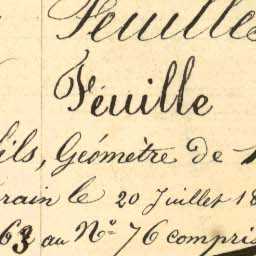 Feuilles
Feuille
fils, Géomètre de 1
rrain le 20 Juillet 18
63 au N° 76 compris